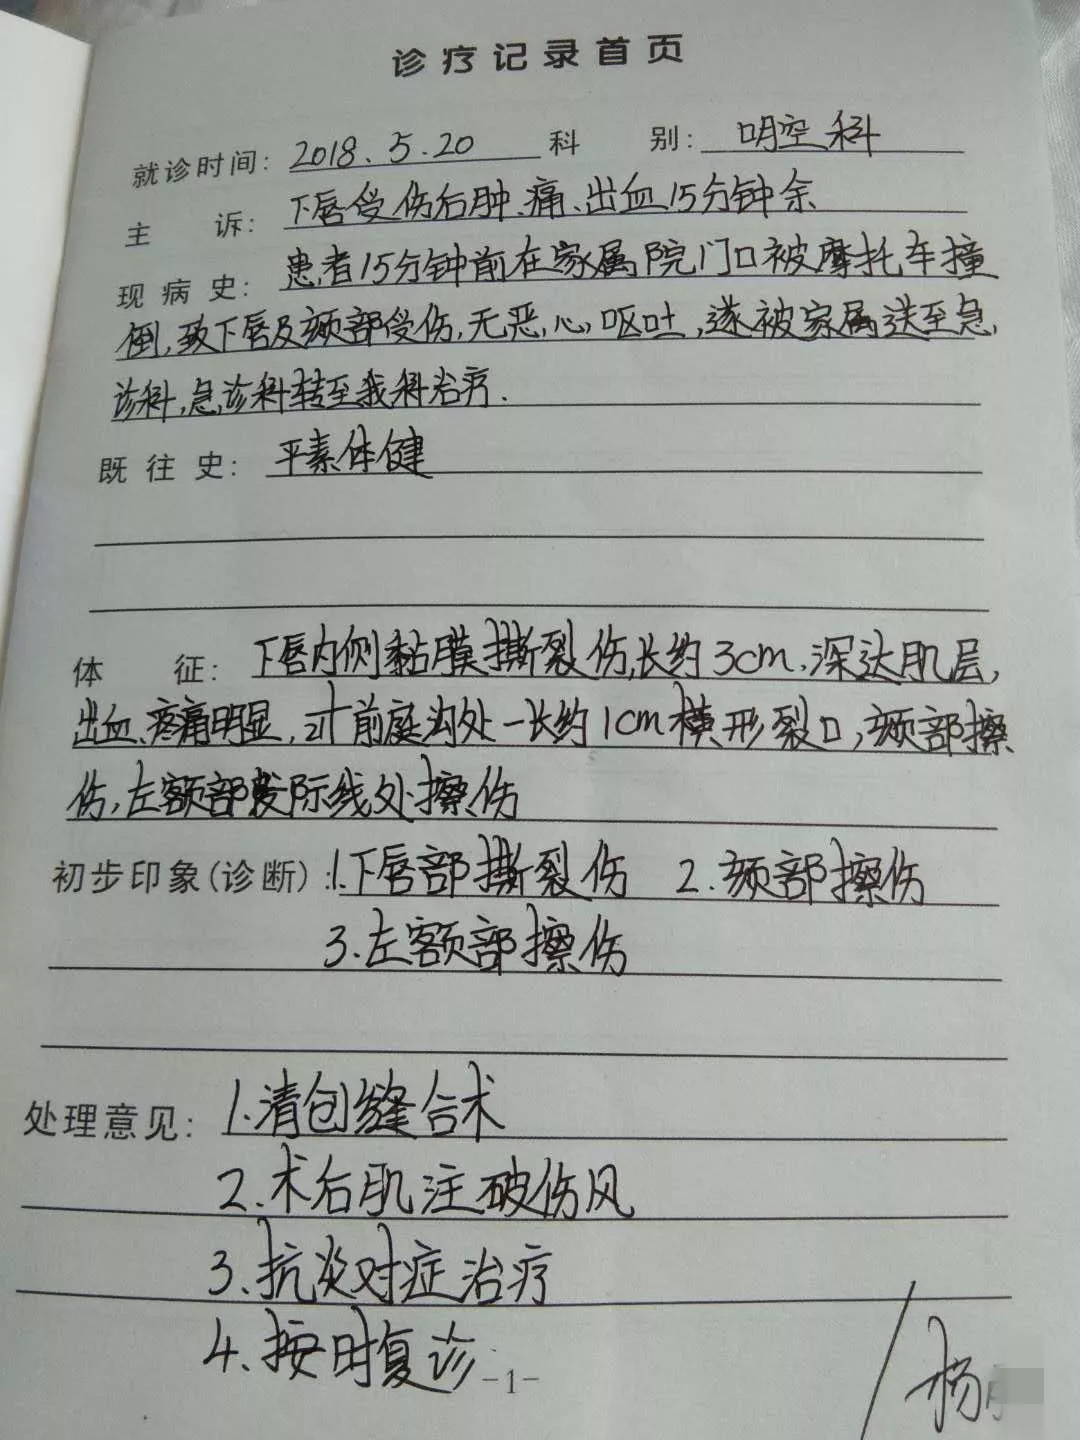 诊疗记录首页
就诊时间: 2018.5.20 科 别: 口腔科
主 诉: 下唇受伤后肿、痛、出血15分钟余
现病史: 患者15分钟前在家属院门口被摩托车撞
倒,致下唇及颏部受伤,无恶心,呕吐,遂被家属送至急
诊科,急诊科转至我科治疗.
既往史: 平素体健
体 征: 下唇内侧黏膜撕裂伤,长约3cm.深达肌层,
出血、疼痛明显, 前庭沟处一长约1cm横形裂口,颏部擦
伤,左额部发际线处擦伤
初步印象(诊断): 1.下唇部撕裂伤 2.颏部擦伤
3.左额部擦伤
处理意见: 1.清创缝合术
2.术后肌注破伤风
3.抗炎对症治疗
4.按时复诊
-1-
杨